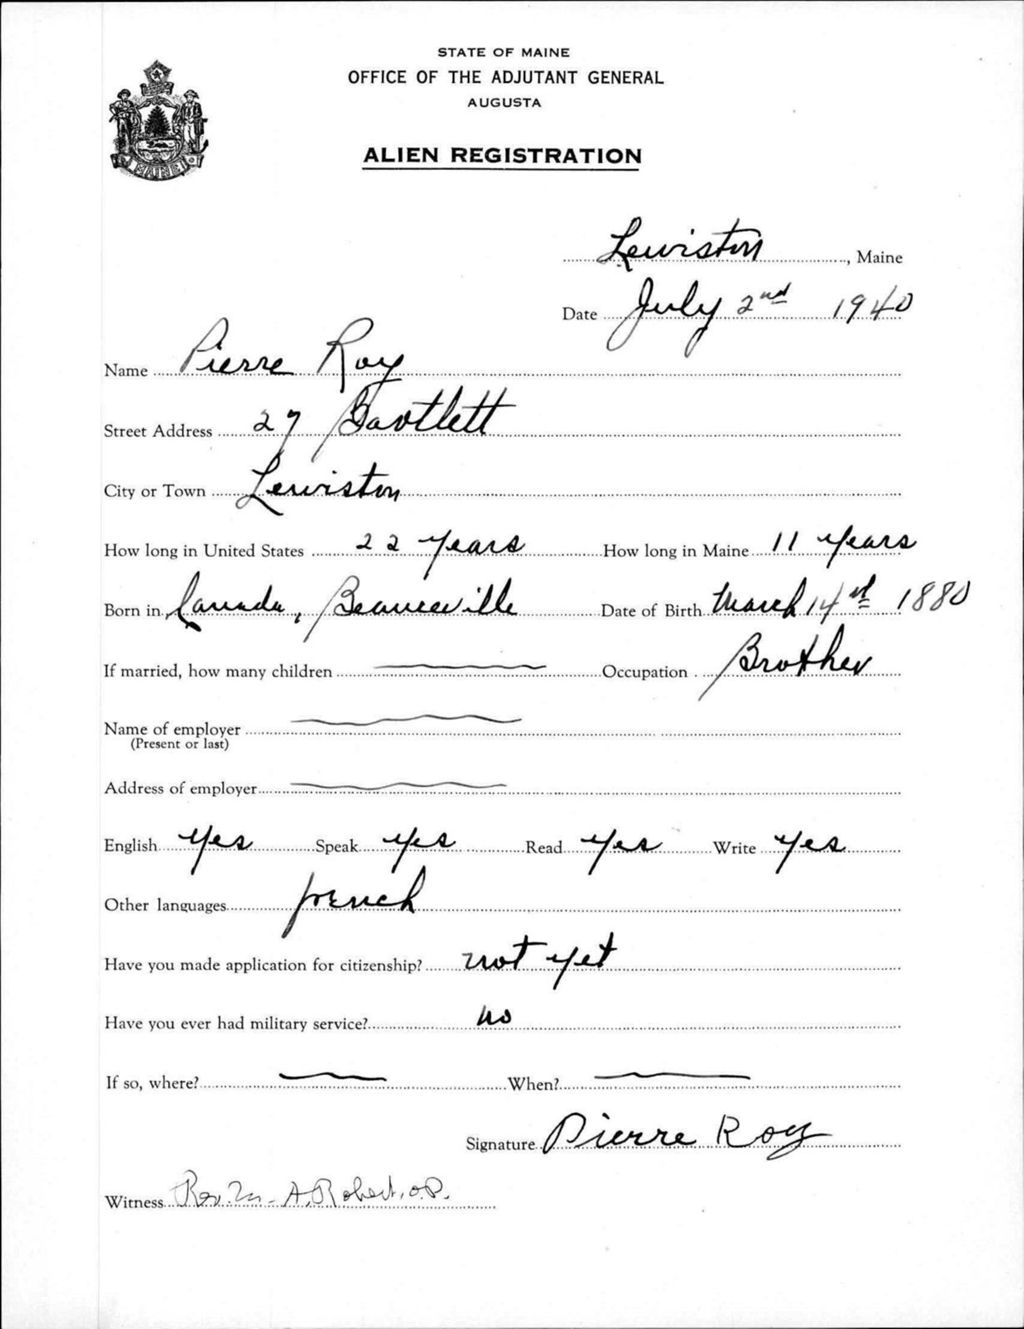 STATE OF MAINE
OFFICE OF THE ADJUTANT GENERAL
AUGUSTA
ALIEN REGISTRATION
MAINE
Lewiston, Maine
Date July 2nd 1940
Name Pierre Roy
Street Address 27 Bartlett
City or Town Lewiston
How long in United States 22 years How long in Maine 11 years
Born in Canada, Beauceville Date of Birth March 14th 1880
If married, how many children Occupation Brother
Name of employer
(Present or last)
Address of employer
English yes Speak yes Read yes Write yes
Other languages french
Have you made application for citizenship? not yet
Have you ever had military service? no
If so, where? When?
Signature Pierre Roy
Witness Rev. M. A. Robert, o.P.